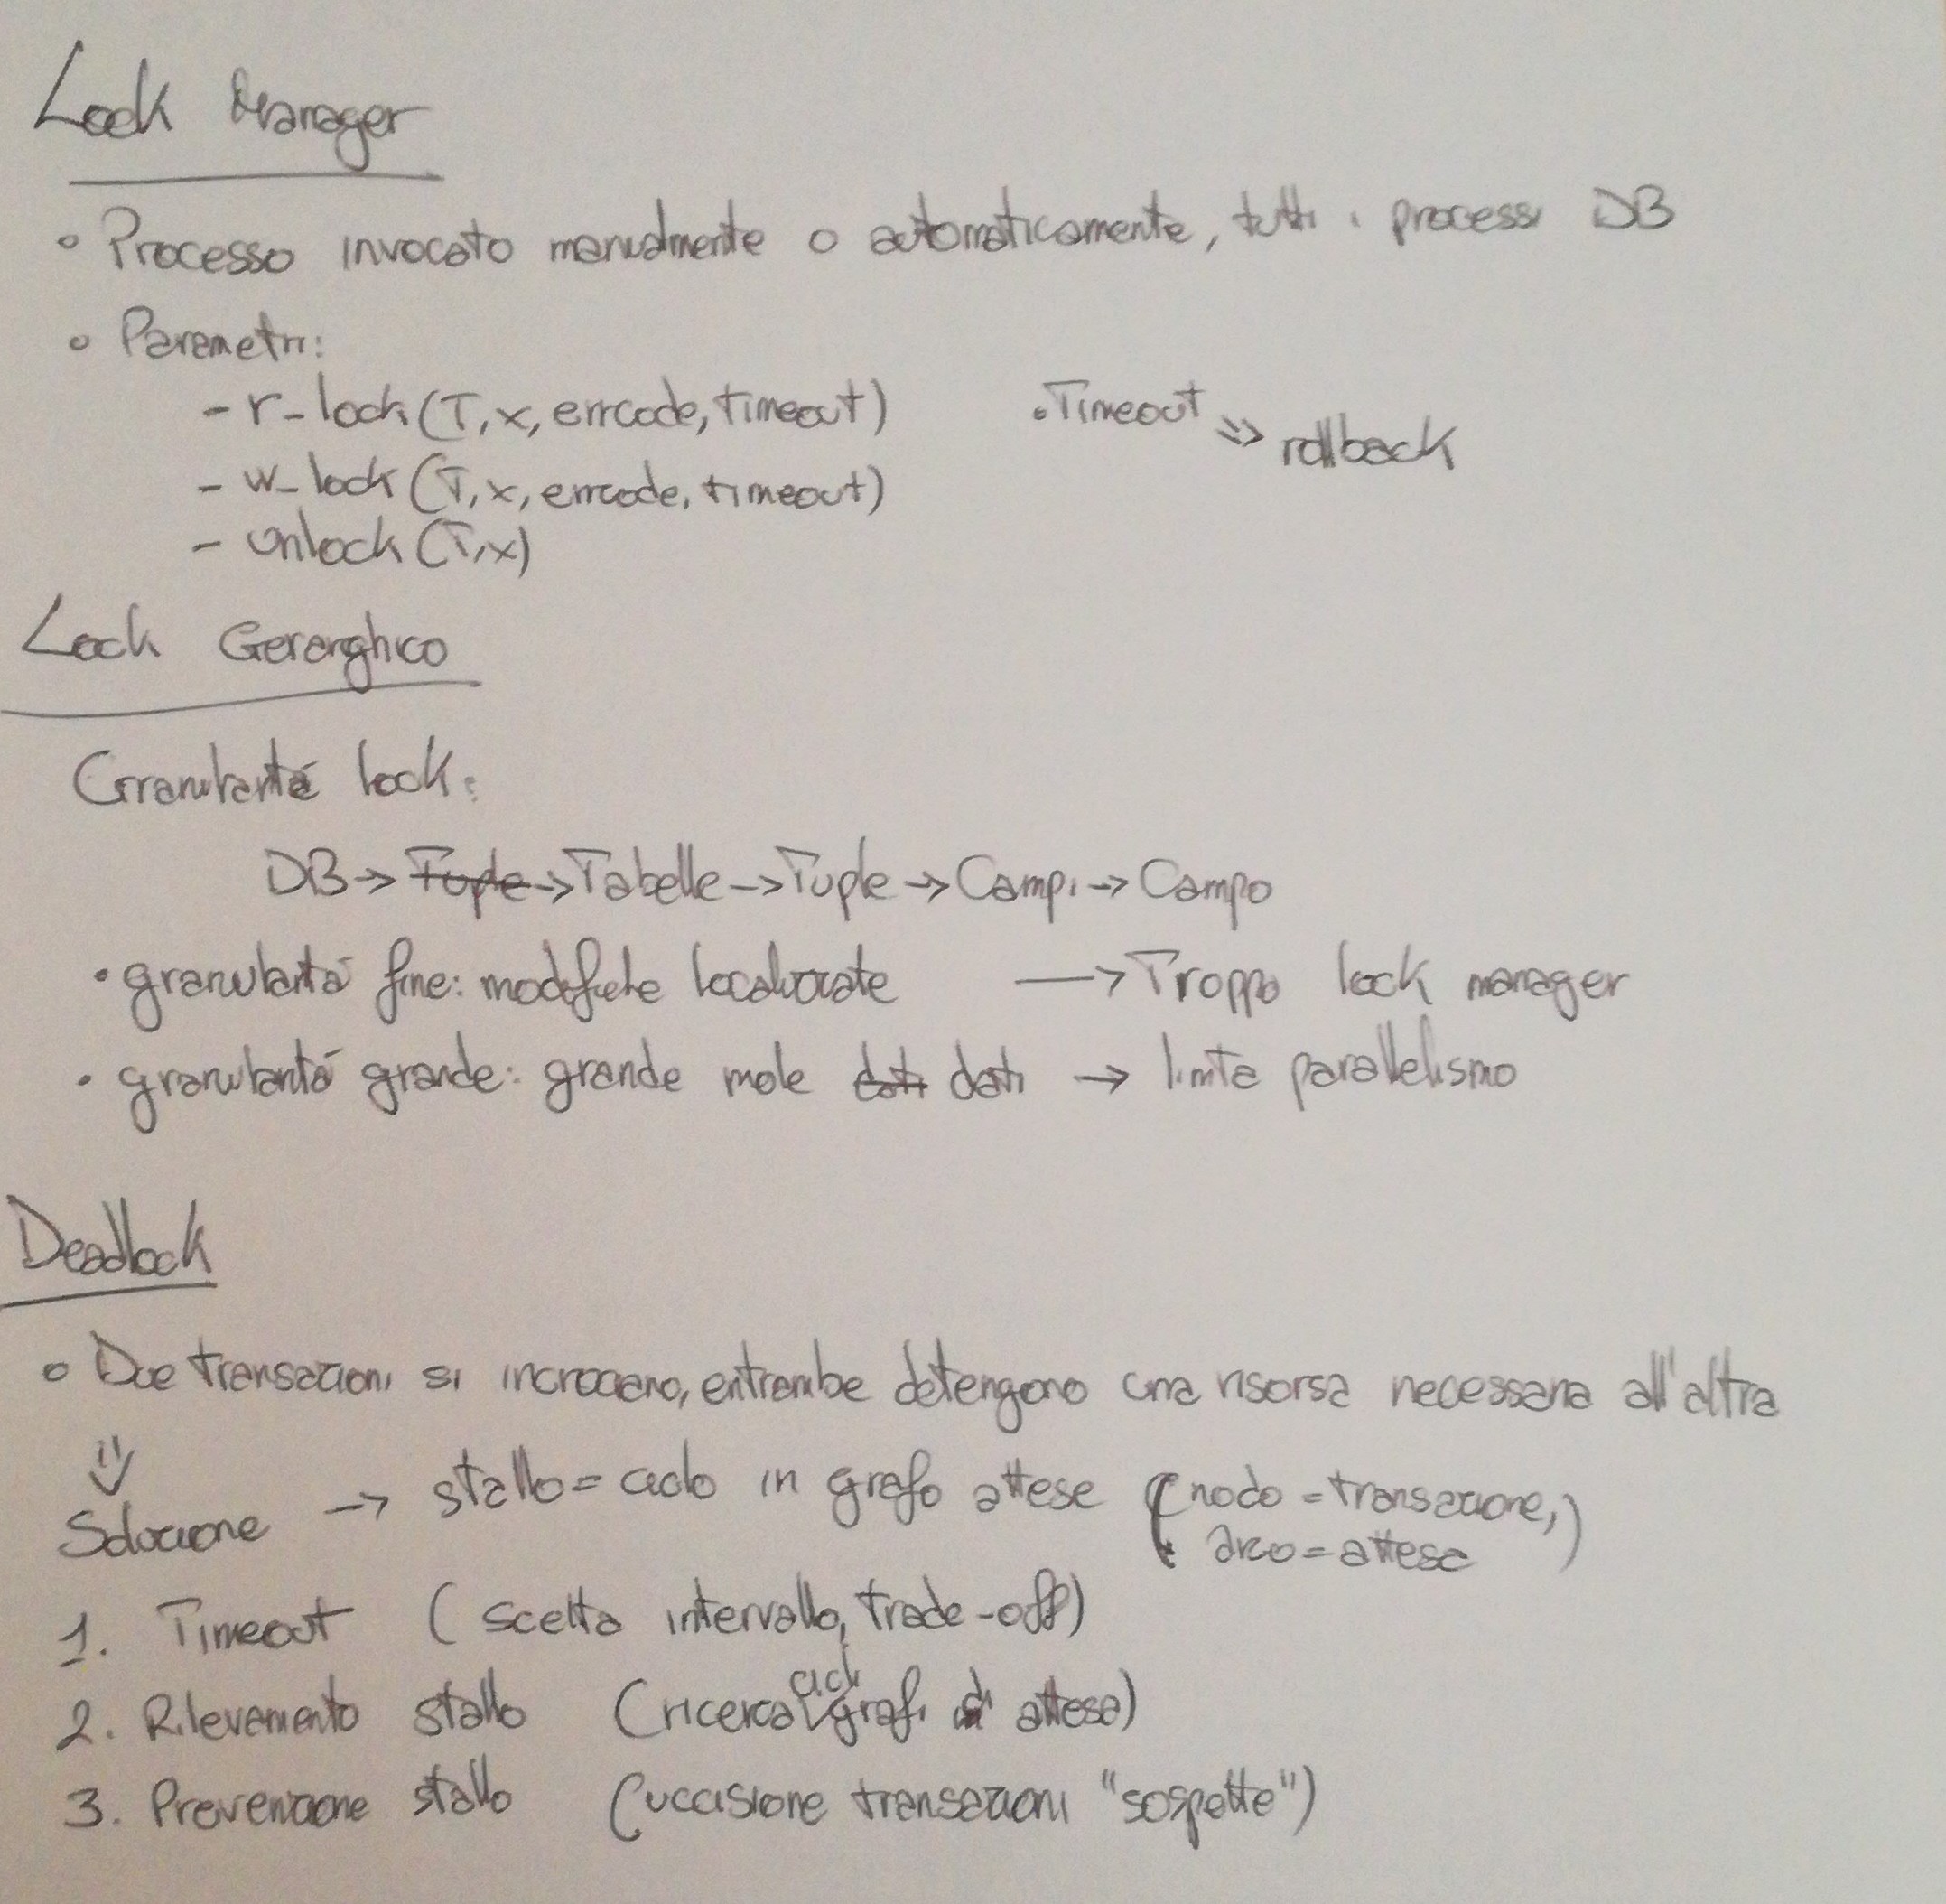 Lock Manager
• Processo invocato manualmente o automaticamente, tutti i processi DB
• Parametri:
- r_lock(T, x, errcode, timeout) • Timeout => rollback
- w_lock(T, x, errcode, timeout)
- unlock(T, x)
Lock Gerarghico
Granularità lock:
DB -> Tuple -> Tabelle -> Tuple -> Campi -> Campo
• granularità fine: modifiche localizzate -> Troppo lock manager
• granularità grande: grande mole dati dati -> limita parallelismo
Deadlock
• Due transazioni si incrociano, entrambe detengono una risorsa necessaria all'altra
Soluzione -> stallo = ciclo in grafo attese (nodo = transazione,)
arco = attesa
1. Timeout (scelta intervallo, trade-off)
2. Rilevamento stallo (ricerca cicli grafi di attesa)
3. Prevenzione stallo (uccisione transazioni "sospette")